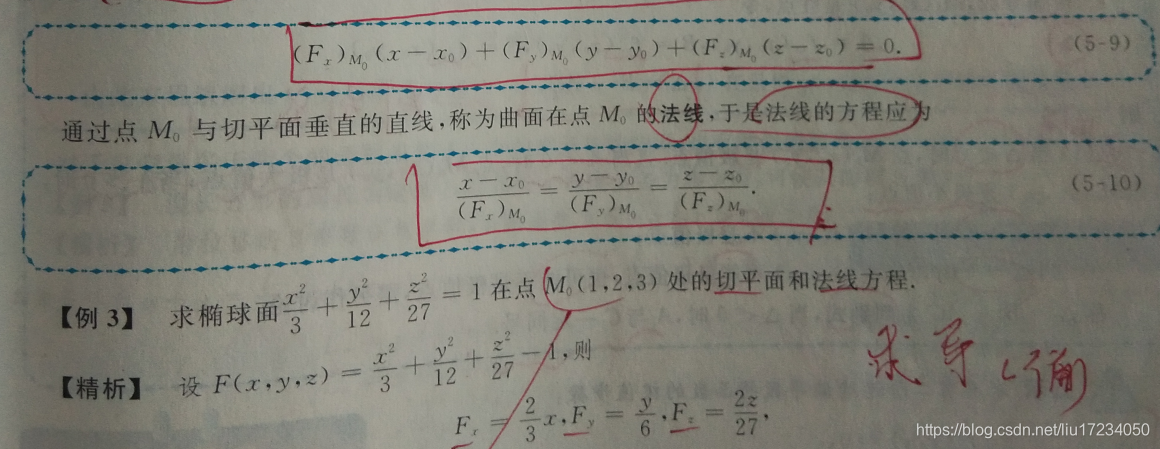 (F_x)_{M_0}(x-x_0)+(F_y)_{M_0}(y-y_0)+(F_z)_{M_0}(z-z_0)=0. (5-9)
通过点 M_0 与切平面垂直的直线,称为曲面在点 M_0 的法线,于是法线的方程应为
\frac{x-x_0}{(F_x)_{M_0}}=\frac{y-y_0}{(F_y)_{M_0}}=\frac{z-z_0}{(F_z)_{M_0}}. (5-10)
【例 3】 求椭球面\frac{x^2}{3}+\frac{y^2}{12}+\frac{z^2}{27}=1在点 M_0(1,2,3) 处的切平面和法线方程.
【精析】 设 F(x,y,z)=\frac{x^2}{3}+\frac{y^2}{12}+\frac{z^2}{27}-1,则
F_x=\frac{2}{3}x,F_y=\frac{y}{6},F_z=\frac{2z}{27},
求导
https://blog.csdn.net/liu17234050